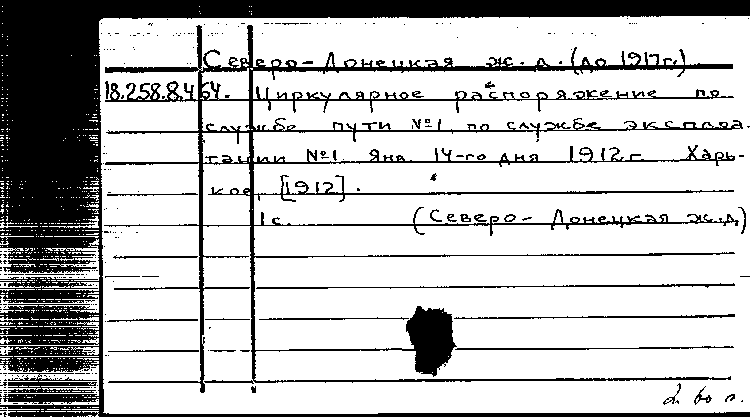 Северо-Донецкая ж.д. (до 1917г.)
18.258.8.464. Циркулярное распоряжение по
службе пути №1, по службе эксплоа-
тации №1. Янв. 14-го дня 1912 г. Харь-
ков, [1912].
1 с. (Северо-Донецкая ж.д.)